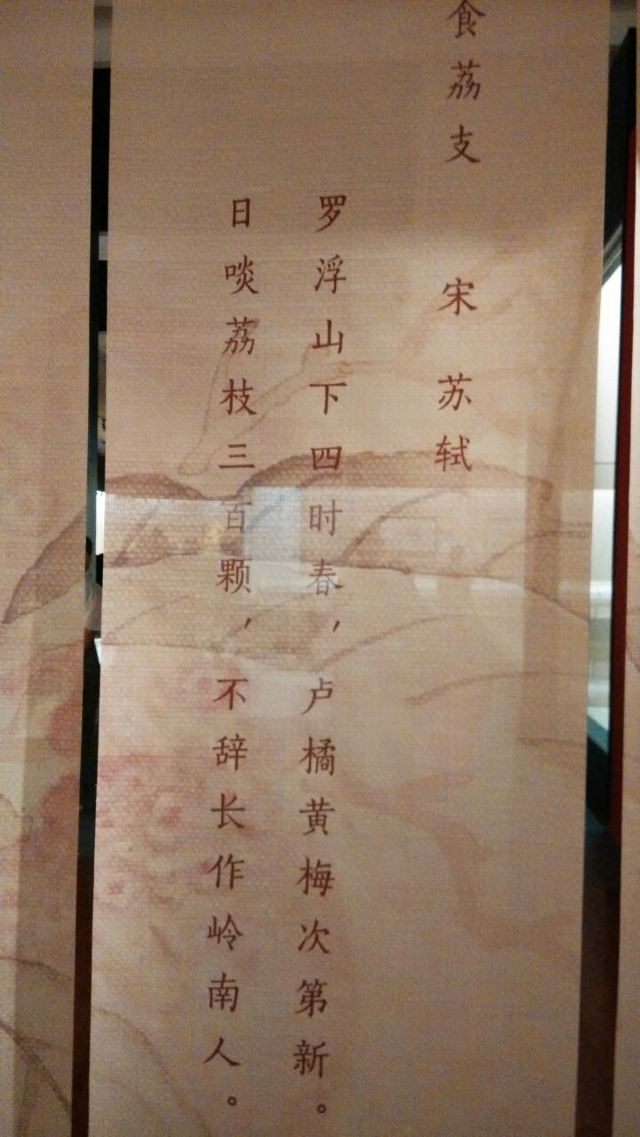 食荔支
宋 苏轼
罗浮山下四时春，卢橘黄梅次第新。
日啖荔枝三百颗，不辞长作岭南人。